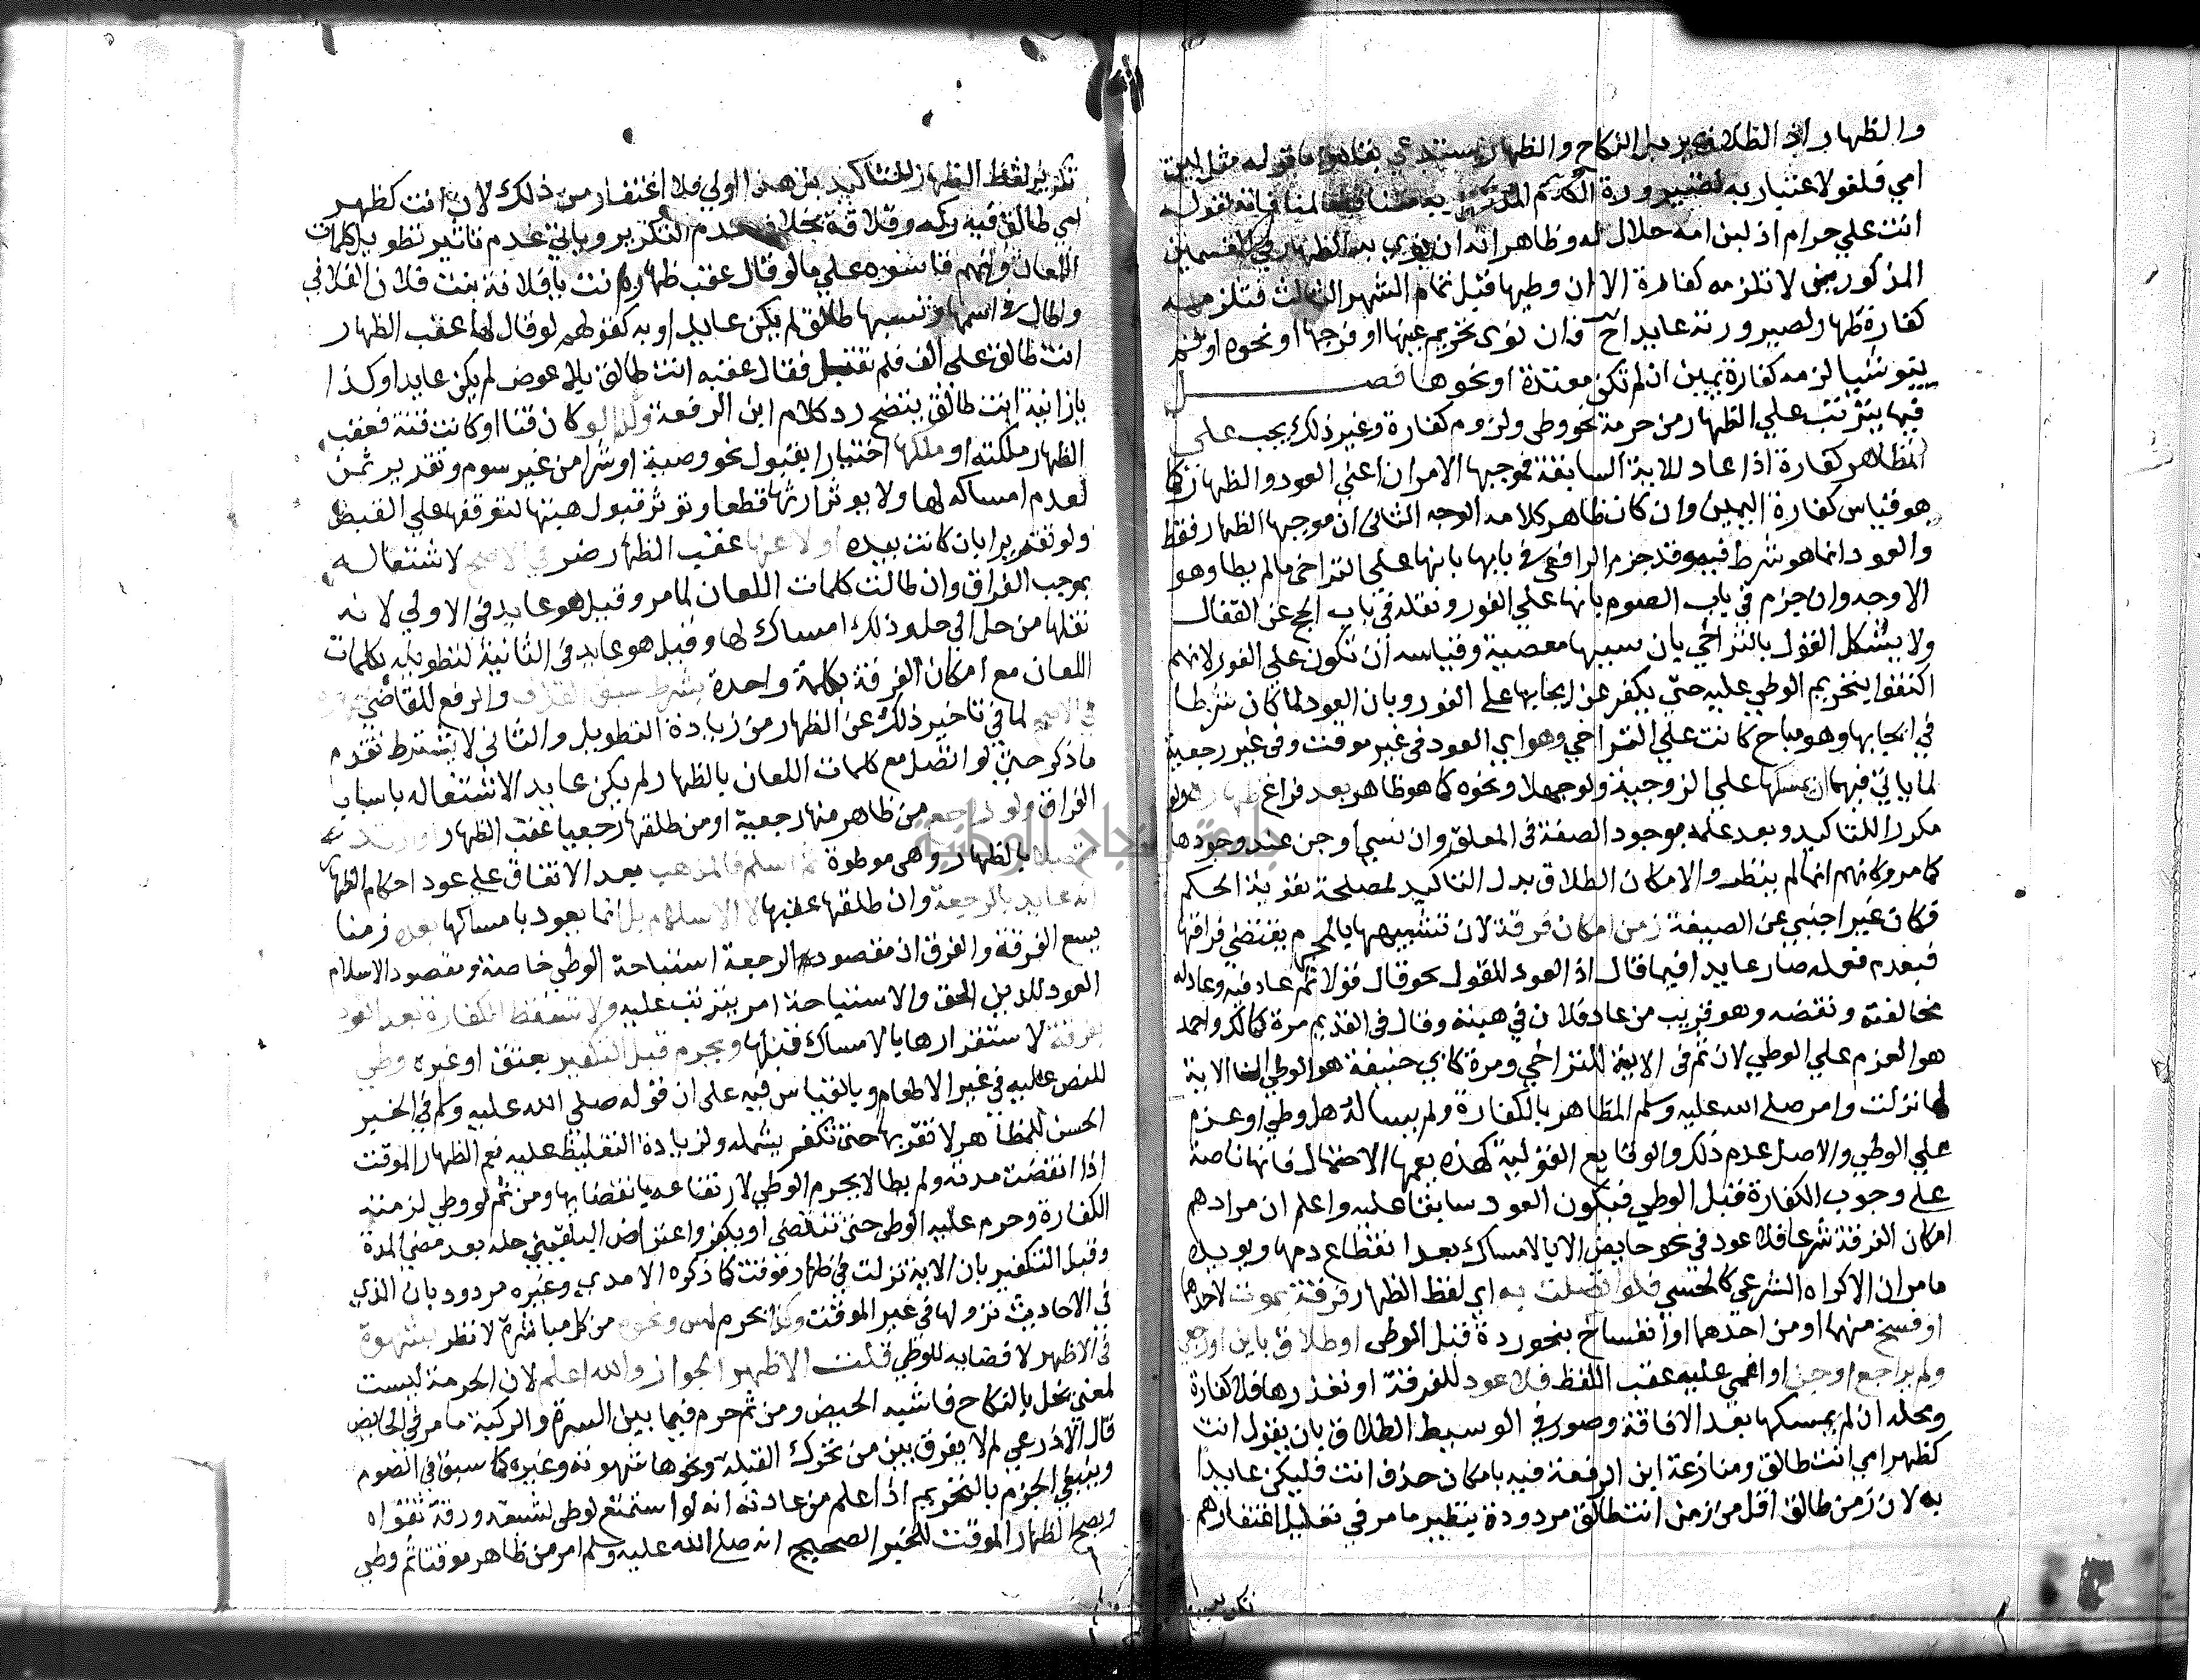 والظهار اذ الطلاق يزيل النكاح والظهار يستدعي بقاه واما قوله مثل لبن
امي فلغو لا عتبار به لصيرورة
انت علي حرام اذ لبن امه حلال له وظاهر انه ان نوي به الظهار في القسمين
المذكورين لا تلزمه كفارة الا ان وطيها قبل تمام الشهر الثالث فتلزمه
كفارة ظهار لصيرورته عايدا ح فان نوى تحريم عينها او فرجها او نحوه او لم
ينو شيا لزمه كفارة يمين ان لم تكن معتدة او نحوها فصل
فيما يترتب علي الظهار من حرمة نحو وطي ولزوم كفارة وغير ذلك يجب علي
المظاهر كفارة اذا عاد للاية السابقة فموجبها الامران اعني العود والظهار كما
هو قياس كفارة اليمين وان كان ظاهر كلامه الوجه الثاني ان موجبها الظهار فقط
والعود انما هو شرط فيه وقد جزم الرافعي في بابها بانها علي التراخي مالم يطا وهو
الاوجه وان جزم في باب الصوم بانها علي الفور ونقله في باب الحج عن القفال
ولا يشكل القول بالتراخي بان سببها معصية وقياسه ان تكون علي الفور لانهم
اكتفوا بتحريم الوطي عليه حتي يكفر عن ايجابها علي الفور وبان العود لما كان شرطا
في ايجابها وهو مباح كانت علي التراخي وهو اي العود في غير موقت وفي غير رجعية
لما ياتي فيهما ان يمسكها علي الزوجية ولو جهلا ونحوه كما هو ظاهر بعد فراغ ظهاره ولو
مكررا للتاكيد وبعد علمه بوجود الصفة في المعلق وان نسي او جن عند وجودها
كما مر وكانهم انما لم ينظروا لامكان الطلاق بدل التاكيد لمصلحة تقوية الحكم
فكان غير اجنبي عن الصيغة زمن امكان فرقة لان تشبيهها بالمحرم يقتضي فراقها
فبعدم فعله صار عايدا فيما قال اذ العود للقول نحو قال قولا ثم عاد فيه وعاد له
مخالفته ونقضه وهو قريب من عاد فلان في هبته وقال في القديم مرة كمالك واحمد
هو العزم علي الوطي لان ثم في الاية للتراخي ومرة كابي حنيفة هو الوطي لنا ان الاية
لما نزلت وامر صلي الله عليه وسلم المظاهر بالكفارة ولم يساله هل وطي او عزم
علي الوطي والاصل عدم ذلك والوقايع القولية كهذه يعمها الاحتمال فانها ناصة
علي وجوب الكفارة قبل الوطي فيكون العود سابقا عليه واعلم ان مرادهم
امكان الفرقة شرعا فلا عود في نحو حايض الا بالامساك بعد انقطاع دمها ويويده
مامر ان الاكراه الشرعي كالحسي فلو اتصلت به اي لفظ الظهار فرقة بموت لاحدهما
او فسخ منهما او من احدهما او انفساخ بنحو ردة قبل الوطي او طلاق باين او رجعي
ولم يراجع او جن او اغمي عليه عقب اللفظ فلا عود للفرقة او تعذرها فلا كفارة
ومحله ان لم يمسكها بعد الافاقة وصور في الوسيط الطلاق بان يقول انت
كظهر امي انت طالق ومنازعة ابن الرفعة فيه بامكان حذف انت فليكن عايدا
به لان زمن طالق اقل من زمن انت طالق مردودة بنظير ما مر في تعليل اغتفارهم
تكرير
تكرير لفظ الظهار للتاكيد بل هذا اولي فلا اغتفار من ذلك لان انت كظهر
امي طالق فيه ركة وقلاقة بخلاف عدم التكرير وياتي عدم تاثير تطويل كلمات
اللعان وانهم قاسوه علي مالو قال عقب ظهاره انت يا فلانة بنت فلان الفلاني
واطال في اسمها ونسبها طالق لم يكن عايدا وبه كقولهم لو قال لها عقب الظهار
انت طالق علي الف فلم تقبل فقال عقبه انت طالق بلا عوض لم يكن عايدا وكذا
يا زانية انت طالق يتضح رد كلام ابن الرفعة وكذا لو كان قنا او كانت قنة فعقب
الظهار ملكته او ملكها اختيارا بقبول نحو وصية او شرا من غير سوم وتقدير ثمن
لعدم امساكه لها ولا يوثر ارثها قطعا وتوثر قبول هبتها لتوقفها علي القبض
ولو تقديرا بان كانت بيده او لاعنها عقب الظهار ضر في الاصح لاشتغاله
بموجب الفراق وان طالت كلمات اللعان لما مر وقيل هو عايد في الاولي لانه
نقلها من حل الي حل وذلك امساك لها وقيل هو عايد في الثانية لتطويله بكلمات
اللعان مع امكان الفرقة بكلمة واحدة بشرط سبق القذف والرفع للقاضي
في الاصح لما في تاخير ذلك عن الظهار من زيادة التطويل والثاني لا يشترط تقدم
ماذكر حتي لو اتصل مع كلمات اللعان بالظهار لم يكن عايدا لاشتغاله باسباب
الفراق ولو راجع من ظاهر منها رجعية او من طلقها رجعيا عقب الظهار او ارتد
متصلا بالظهار وهي موطوة ثم اسلم فالمذهب بعد الاتفاق علي عود احكام الظهار
انه عايد بالرجعة وان طلقها عقبها لا الاسلام بل انما يعود بامساكها بعده زمنا
يسع الفرقة والفرق ان مقصود الرجعة استباحة الوطي خاصة ومقصود الاسلام
العود للدين الحق والاستباحة امر يترتب عليه ولا تسقط الكفارة بعد العود
بفرقة لاستقرارها بالامساك قبلها ويحرم قبل التكفير بعتق او غيره وطي
للنص عليه في غير الاطعام وبالقياس فيه علي ان قوله صلي الله عليه وسلم في الخبر
الحسن للمظاهر لا تقربها حتي تكفر يشمله ولزيادة التغليظ عليه نعم الظهار الموقت
اذا انقضت مدته ولم يطا لا يحرم الوطي لارتفاعه بانقضايها ومن ثم لو وطي لزمته
الكفارة وحرم عليه الوطي حتي تنقضي او يكفر واعتراض البلقيني حله بعد مضي المدة
وقبل التكفير بان الاية نزلت في ظهار موقت كما ذكره الامدي وغيره مردود بان الذي
في الاحاديث نزولها في غير الموقت وكذا يحرم لمس ونحوه من كل مباشرة لا نظر بشهوة
في الاظهر لافضايه للوطي قلت الاظهر الجواز والله اعلم لان الحرمة ليست
لمعني يخل بالنكاح فاشبه الحيض ومن ثم حرم فيما بين السرة والركبة ما مر في الحايض
قال الاذرعي لم لا يفرق بين من تحرك القبلة ونحوها شهوته وغيره كما سبق في الصوم
وينبغي الجزم بالتحريم اذا علم من عادته انه لو استمتع لوطي لشبقه ورقة تقواه
ويصح الظهار الموقت للخبر الصحيح انه صلي الله عليه وسلم امر من ظاهر موقتا ثم وطي
جامعة النجاح الوطنية